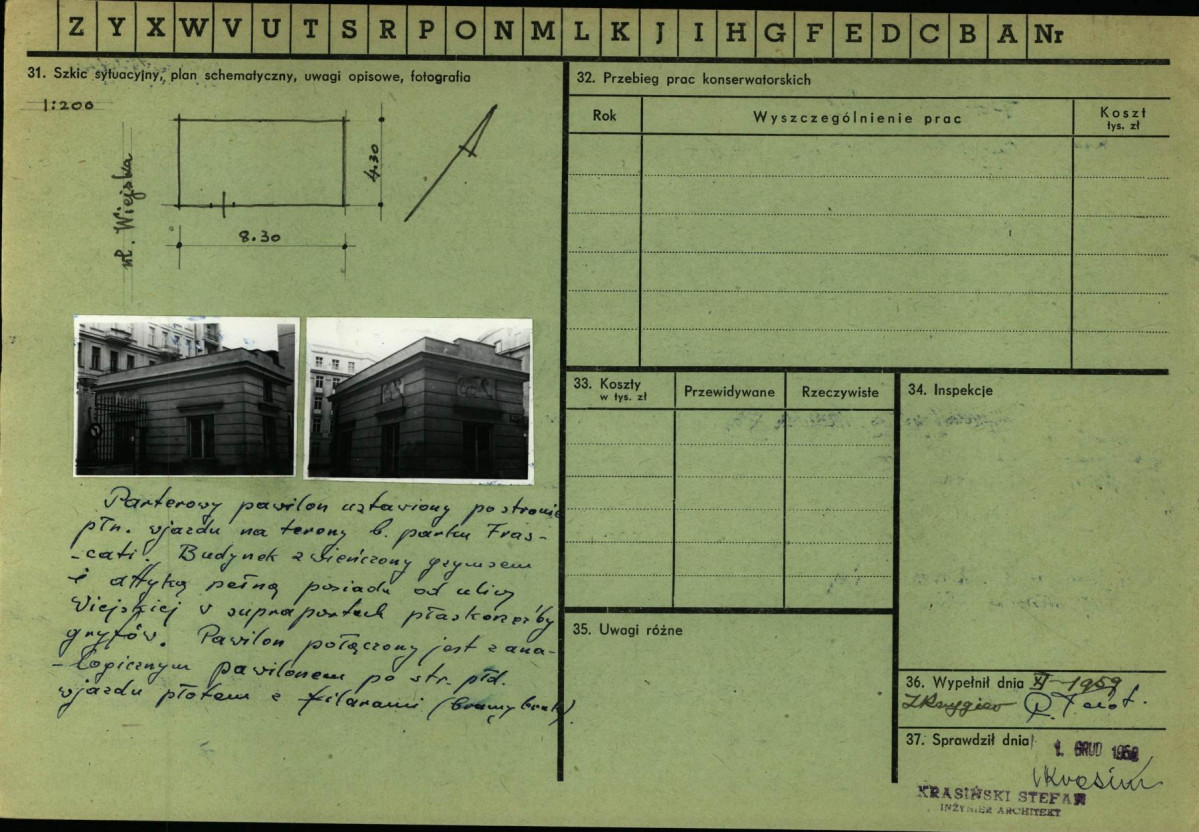 Z Y X W V U T S R P O N M L K J I H G F E D C B A Nr
31. Szkic sytuacyjny, plan schematyczny, uwagi opisowe, fotografia
1:200
ul. Wiejska
4.30
8.30
Parterowy pawilon ustawiony po stronie
płn. wjazdu na tereny b. parku Fras-
-cati. Budynek zwieńczony gzymsem
i attyką pełną posiada od ulicy
Wiejskiej w supraportach płaskorzeźby
gryfów. Pawilon połączony jest z ana-
-logicznym pawilonem po str. płd.
wjazdu płotem z filarami (bramy brak).
32. Przebieg prac konserwatorskich
Rok
Wyszczególnienie prac
Koszt
tys. zł
33. Koszty
w tys. zł
Przewidywane
Rzeczywiste
34. Inspekcje
35. Uwagi różne
36. Wypełnił dnia XI-1959
37. Sprawdził dnia 1. GRUD 1959
KRASIŃSKI STEFAN
INŻYNIER ARCHITEKT